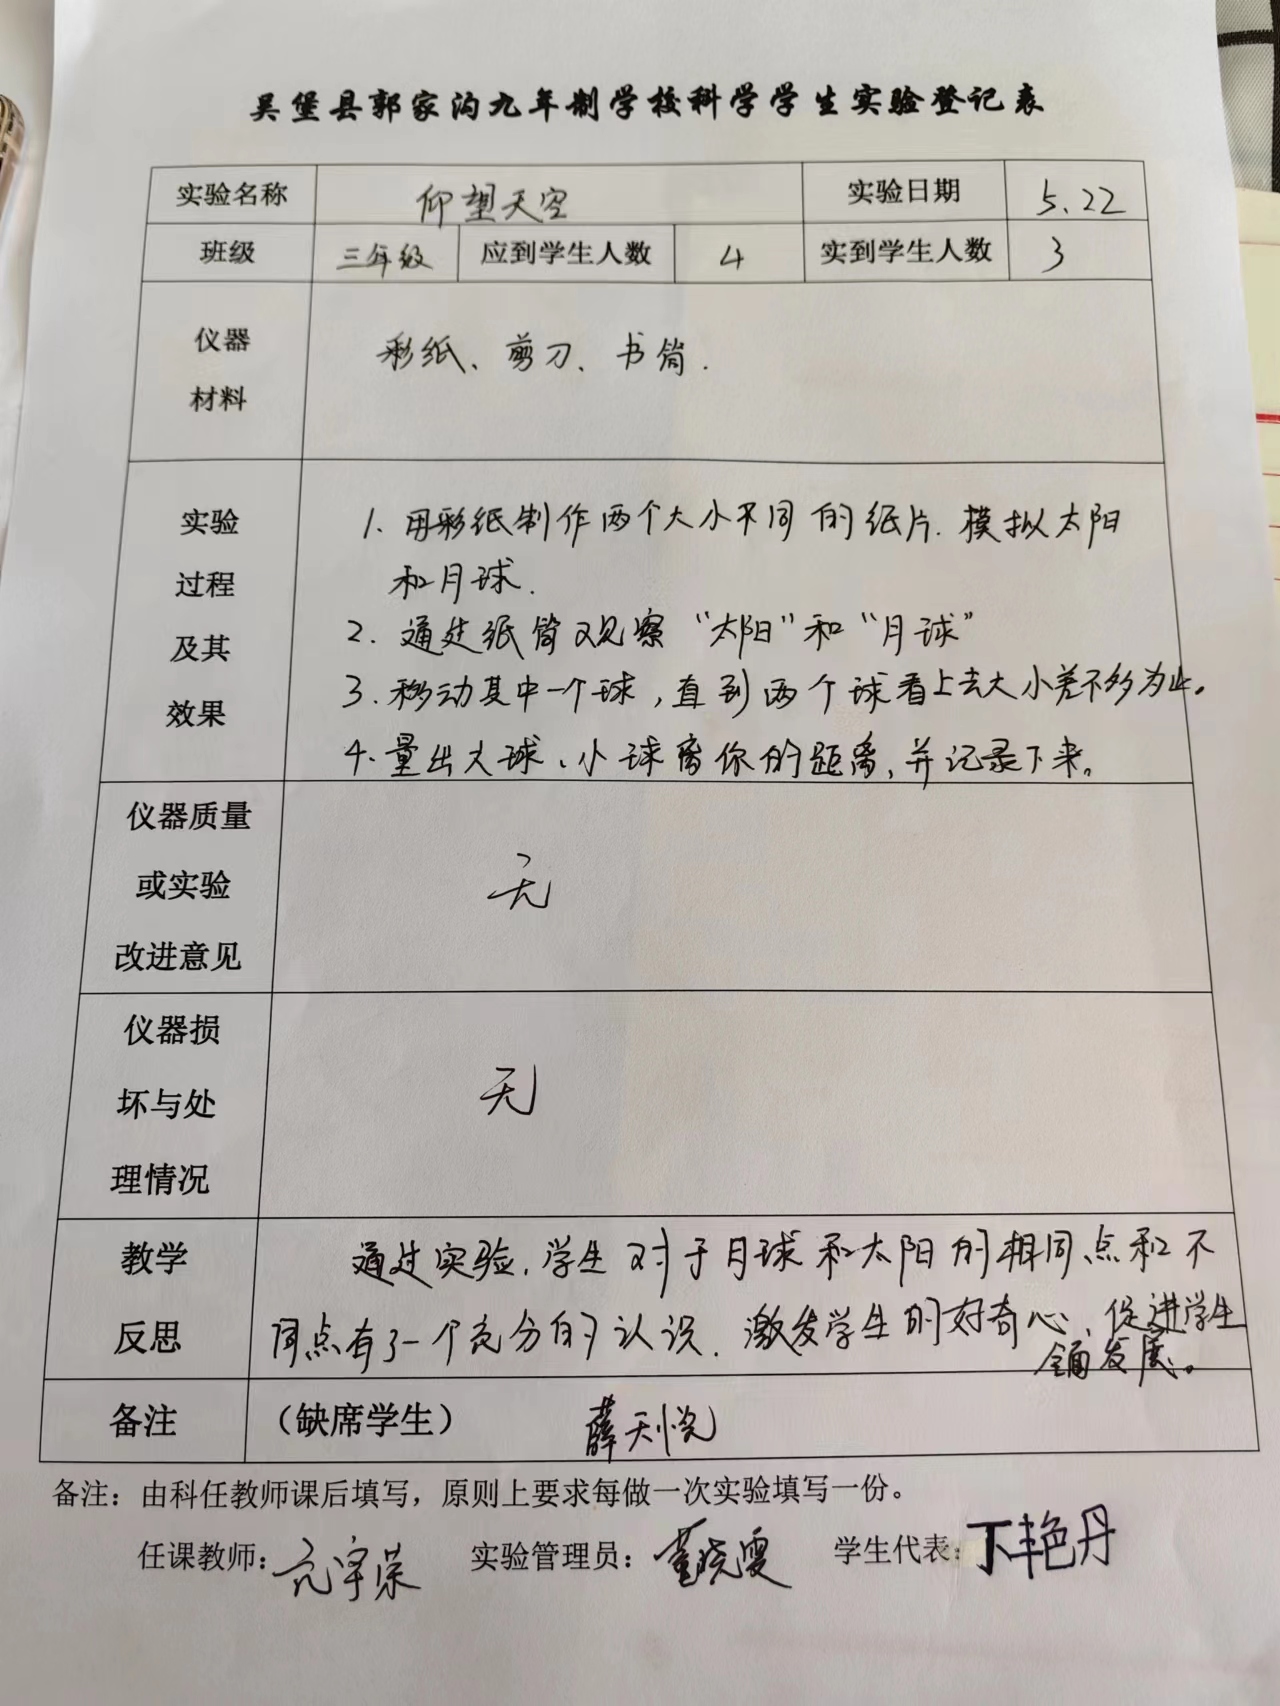 吴堡县郭家沟九年制学校科学学生实验登记表
实验名称 仰望天空 实验日期 5.22
班级 三年级 应到学生人数 4 实到学生人数 3
仪器
材料
彩纸、剪刀、书筒.
实验
过程
及其
效果
1. 用彩纸制作两个大小不同的纸片.模拟太阳
和月球.
2. 通过纸筒观察“太阳”和“月球”
3. 移动其中一个球,直到两个球看上去大小差不多为止。
4. 量出大球、小球离你的距离,并记录下来。
仪器质量
或实验
改进意见
无
仪器损
坏与处
理情况
无
教学
反思
通过实验,学生对于月球和太阳的相同点和不
同点有了一个充分的认识.激发学生的好奇心,促进学生
全面发展。
备注 (缺席学生) 薛天悦
备注:由科任教师课后填写,原则上要求每做一次实验填写一份。
任课教师: 实验管理员: 学生代表:丁艳丹